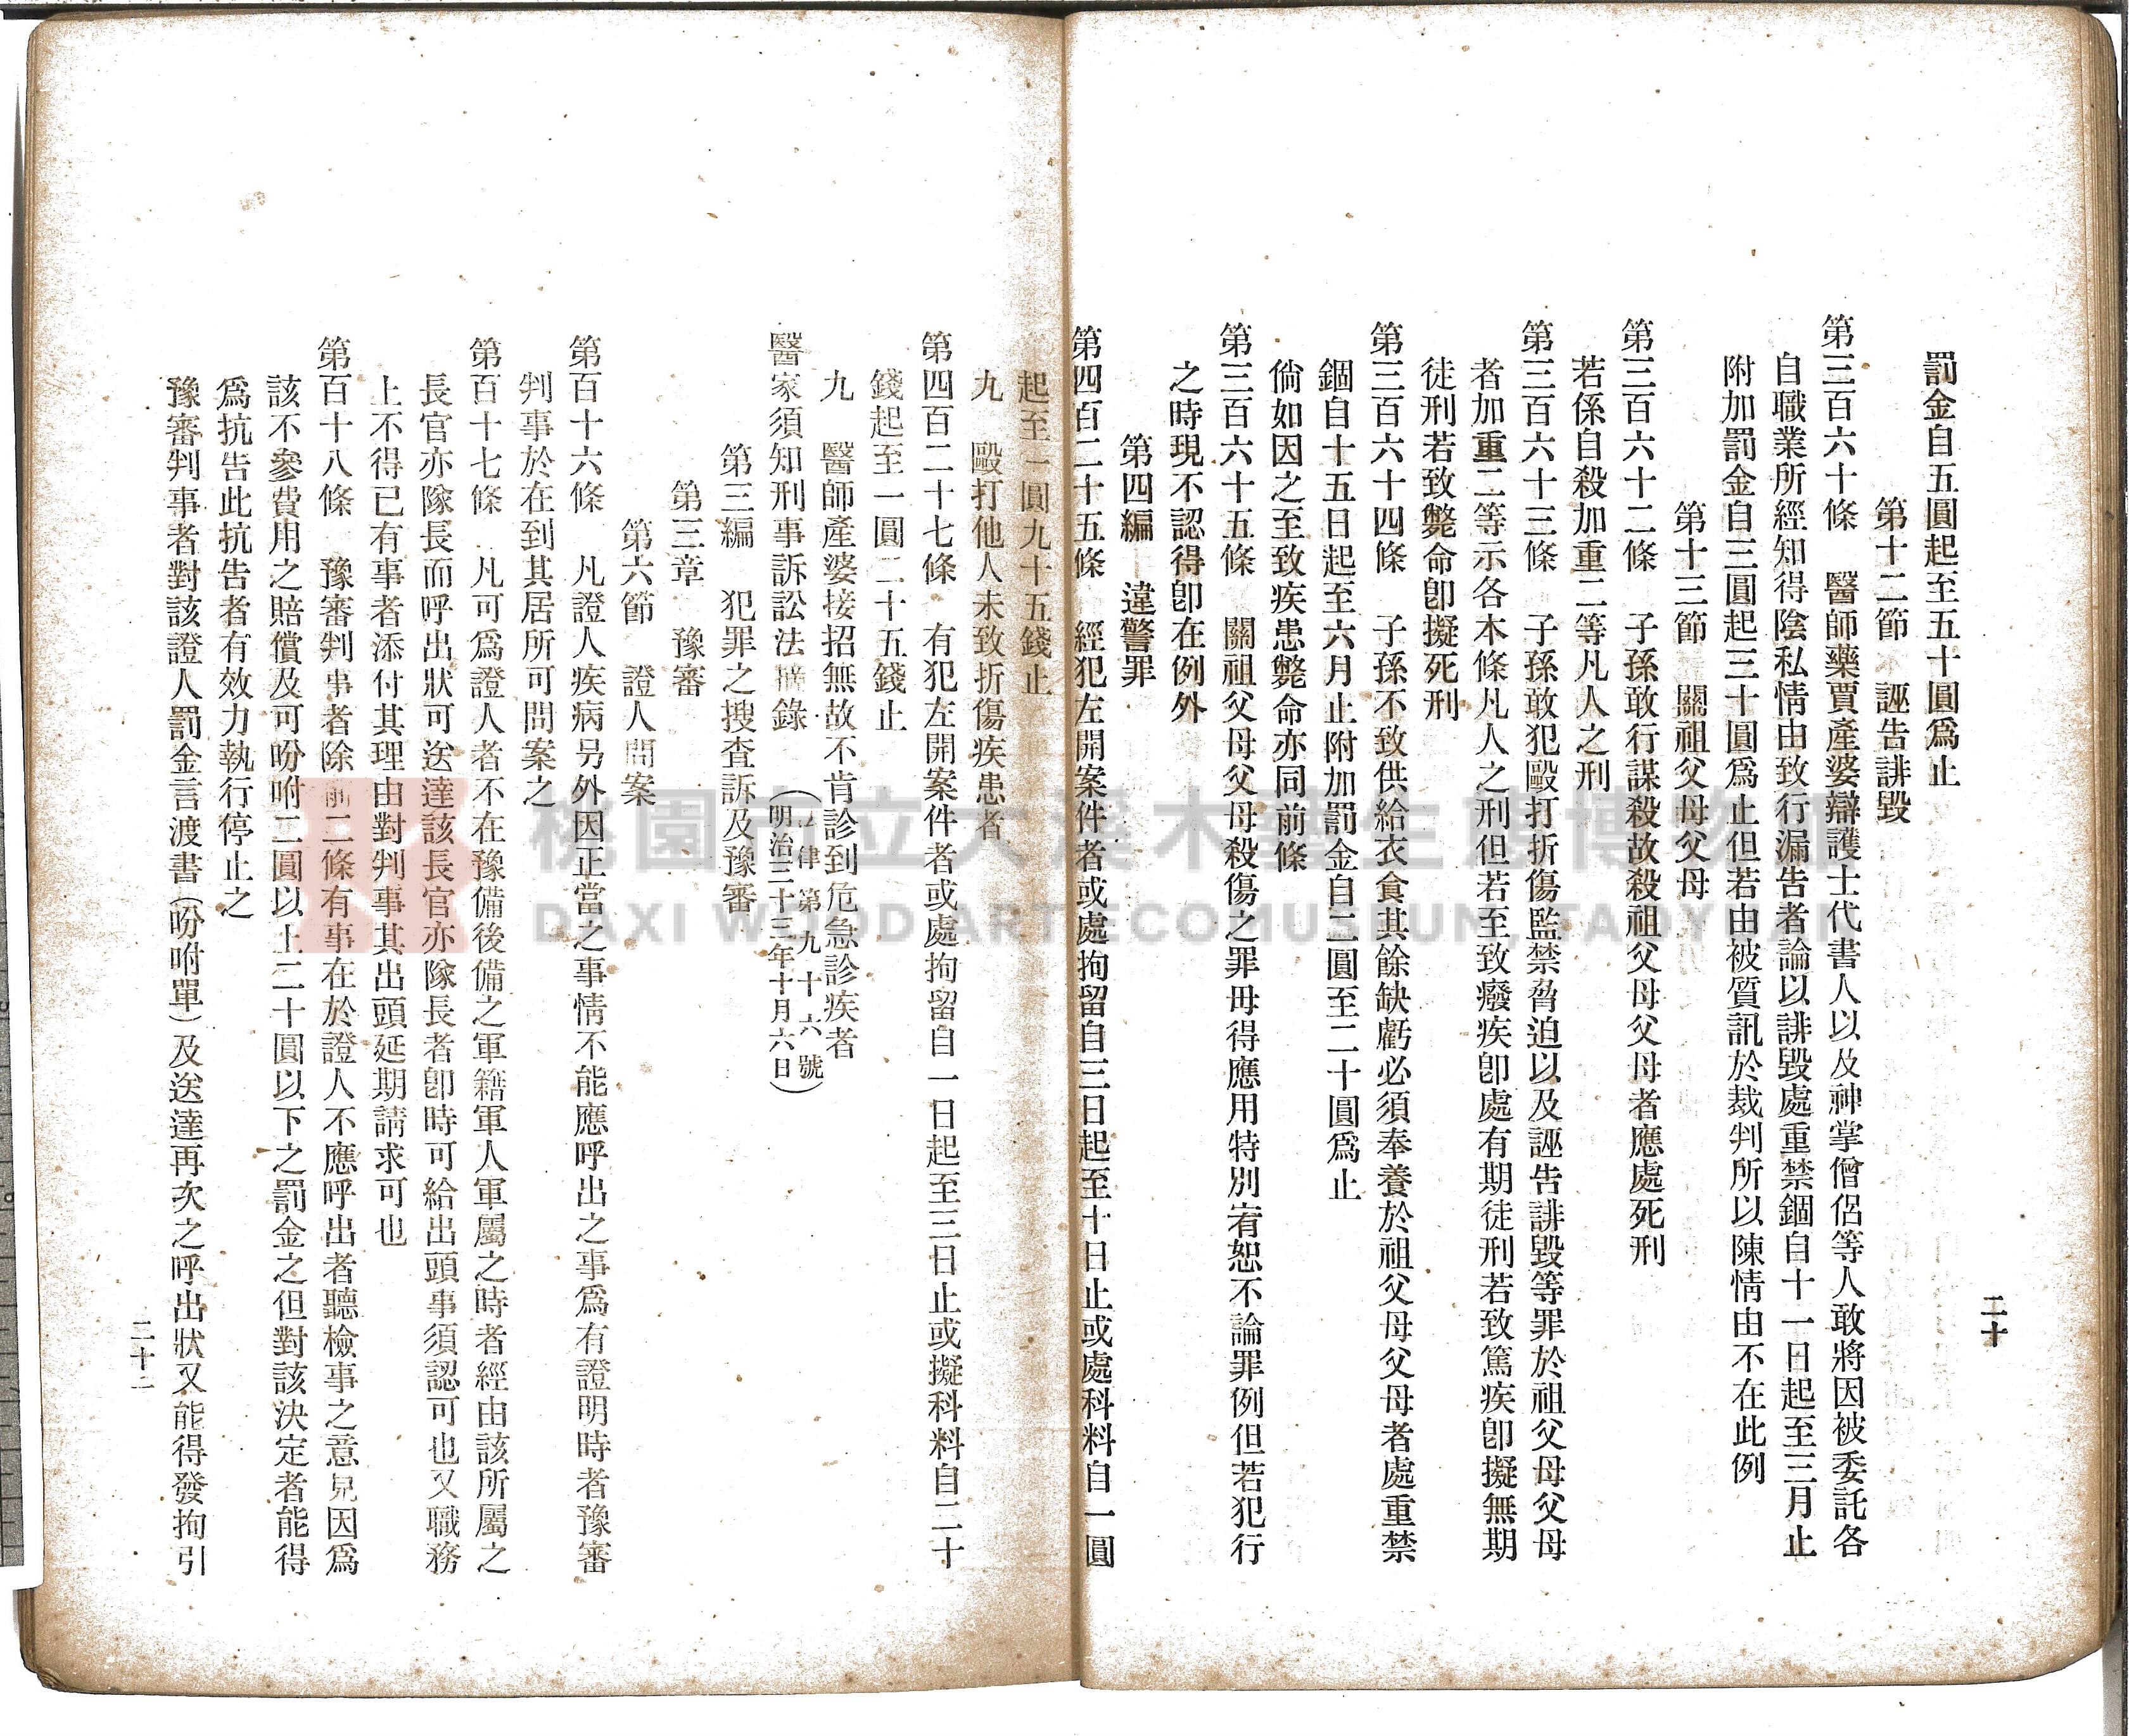 二十
罰金自五圓起至五十圓爲止
第十二節 誣告誹毀
第三百六十條 醫師藥賈產婆辯護士代書人以及神掌僧侶等人敢將因被委託各
自職業所經知得陰私情由致行漏告者論以誹毀處重禁錮自十一日起至三月止
附加罰金自三圓起三十圓爲止但若由被質訊於裁判所以陳情由不在此例
第十三節 關祖父母父母
第三百六十二條 子孫敢行謀殺故殺祖父母父母者應處死刑
若係自殺加重二等凡人之刑
第三百六十三條 子孫敢犯毆打折傷監禁脅迫以及誣告誹毀等罪於祖父母父母
者加重二等示各木條凡人之刑但若至致癈疾卽處有期徒刑若致篤疾卽擬無期
徒刑若致斃命卽擬死刑
第三百六十四條 子孫不致供給衣食其餘缺虧必須奉養於祖父母父母者處重禁
錮自十五日起至六月止附加罰金自二圓至二十圓爲止
倘如因之至致疾患斃命亦同前條
第三百六十五條 關祖父母父母殺傷之罪毋得應用特別宥恕不論罪例但若犯行
之時現不認得卽在例外
第四編 違警罪
第四百二十五條 經犯左開案件者或處拘留自三日起至十日止或處科料自一圓
起至一圓九十五錢止
九 毆打他人未致折傷疾患者
第四百二十七條 有犯左開案件者或處拘留自一日起至三日止或擬科料自二十
錢起至一圓二十五錢止
九 醫師產婆接招無故不肯診到危急診疾者
醫家須知刑事訴訟法摘錄 (法律第九十六號
明治三十三年十月六日)
第三編 犯罪之搜査訴及豫審
第三章 豫審
第六節 證人問案
第百十六條 凡證人疾病另外因正當之事情不能應呼出之事爲有證明時者豫審
判事於在到其居所可問案之
第百十七條 凡可爲證人者不在豫備後備之軍籍軍人軍屬之時者經由該所屬之
長官亦隊長而呼出狀可送達該長官亦隊長者卽時可給出頭事須認可也又職務
上不得已有事者添付其理由對判事其出頭延期請求可也
第百十八條 豫審判事者除前二條有事在於證人不應呼出者聽檢事之意見因爲
該不參費用之賠償及可吩咐二圓以上二十圓以下之罰金之但對該決定者能得
爲抗告此抗告者有效力執行停止之
豫審判事者對該證人罰金言渡書(吩咐單)及送達再次之呼出狀又能得發拘引
二十一
桃園市立大溪木藝生態博物館
DAXI WOOD ART ECOMUSEUM, TAOYUAN